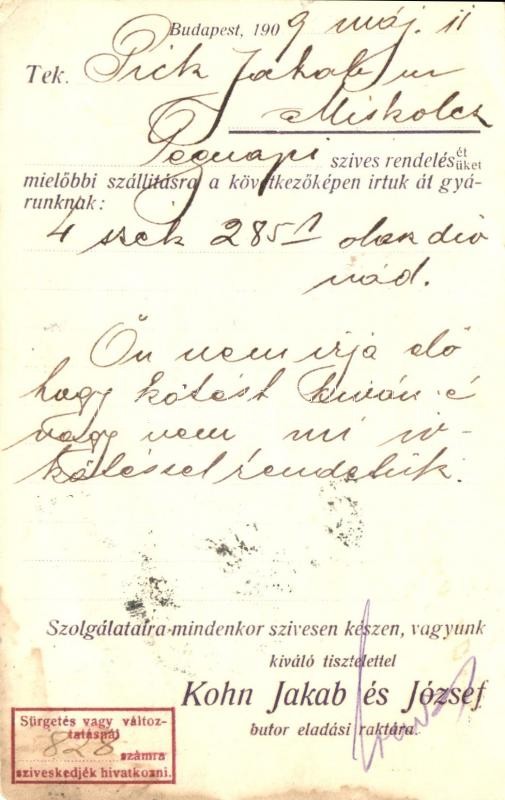 Budapest, 1909 máj. 11
Tek. Pick Jakab ur
Miskolcz
szives rendelését
üket
mielőbbi szállitásra a következőképen irtuk át gyá-
runknak:
4 szék 285 olasz dió
nád.
Ön nem irja elő
hogy kötést kiván-é
vagy nem mi
kötéssel rendeltük.
Szolgálataira mindenkor szivesen készen, vagyunk
kiváló tisztelettel
Kohn Jakab és József
butor eladási raktára.
Sürgetés vagy változ-
tatásnál
828 számra
sziveskedjék hivatkozni.